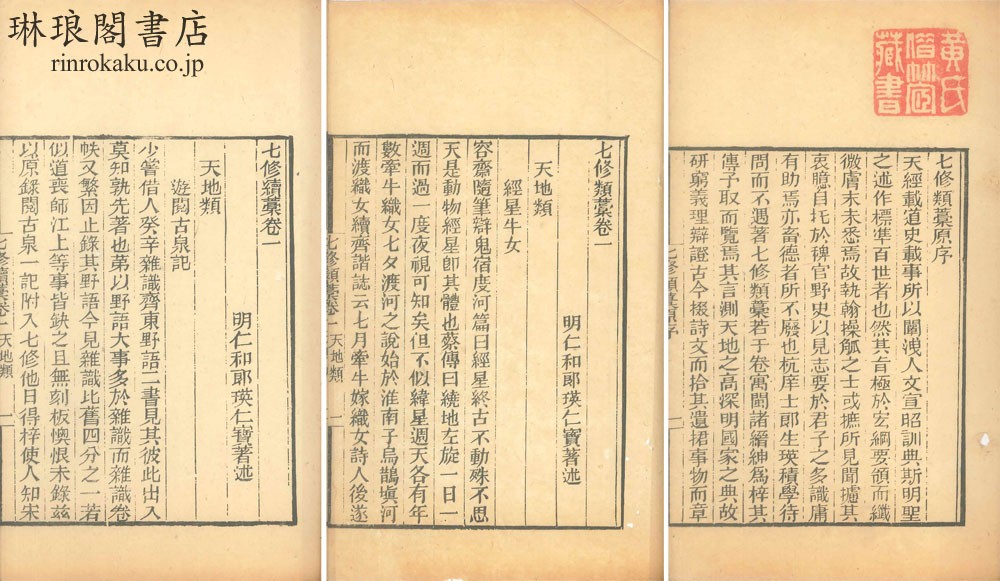 琳琅閣書店
rinrokaku.co.jp
黄氏
藏書
七修類藁原序
天經載道史載事所以闡浅人文宣昭訓典斯明聖
之述作標準百世者也然其旨極於宏綱要領而纖
微膚末未悉焉故執翰操觚之士或摭所見聞攄其
衷臆自托於稗官野史以見志要於君子之多識庸
有助焉亦畜德者所不廢也杭庠士郎生瑛積學待
問而不遇著七修類藁若于卷寓閩諸縉紳爲梓其
傳予取而覽焉其言測天地之高深明國家之典故
研窮義理辯證古今掇詩文而拾其遺捃事物而章
七修類藁卷一
明仁和郎瑛仁寶著述
天地類
經星牛女
容齋隨筆辯鬼宿度河篇曰經星終古不動殊不思
天是動物經星卽其體也蔡傳曰繞地左旋一日一
週而過一度夜視可知矣但不似緯星週天各有年
數牽牛織女七夕渡河之說始於淮南子烏鵲塡河
而渡織女續齊諧誌云七月牽牛嫁織女詩人後遂
七修類藁卷一 天地類 一
七修續藁卷一
明仁和郎瑛仁寶著述
天地類
遊閱古泉記
少嘗借人癸辛雜識齊東野語二書見其彼此出入
莫知孰先著也第以野語大事多於雜識而雜識卷
帙又繁因止錄其野語今見雜識比舊四分之一若
似道喪師江上等事皆缺之且無刻板懊恨未錄兹
以原錄閱古泉一記附入七修他日得梓使人知宋
七修續藁卷一 天地類 一